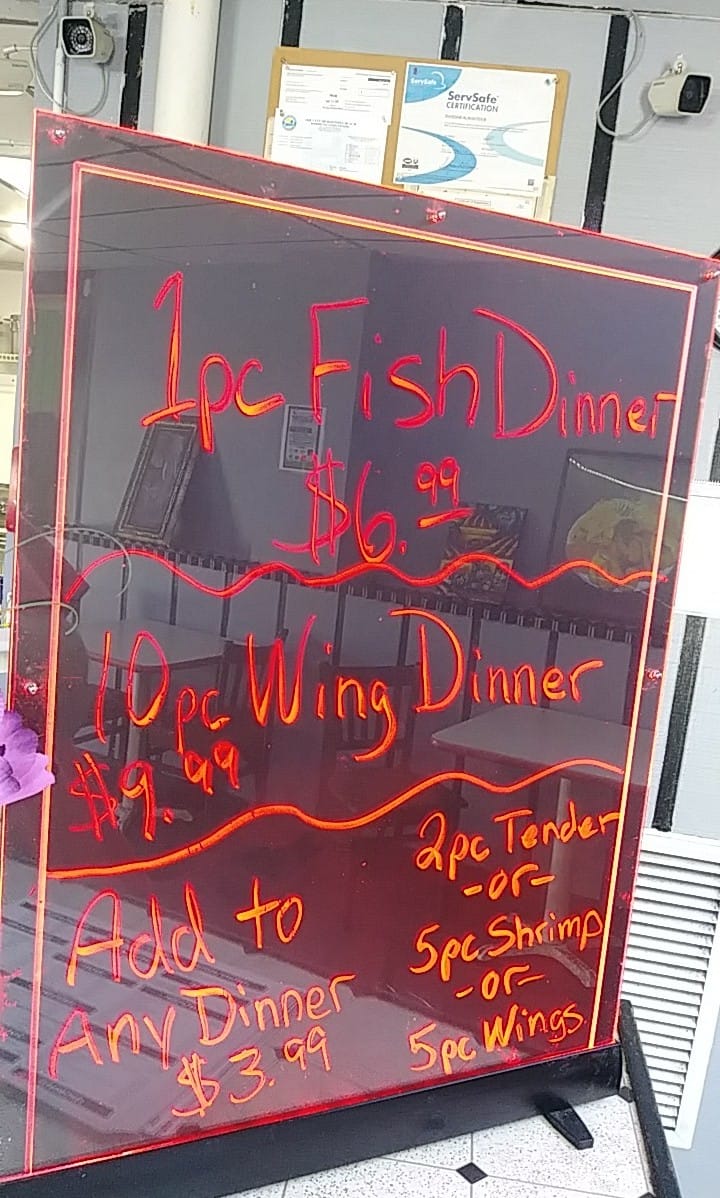 ServSafe
ServSafe
CERTIFICATION
1pc Fish Dinner
$6.99
10pc Wing Dinner
$9.99
Add to
Any Dinner
$3.99
2pc Tender
-or-
5pc Shrimp
-or-
5pc Wings